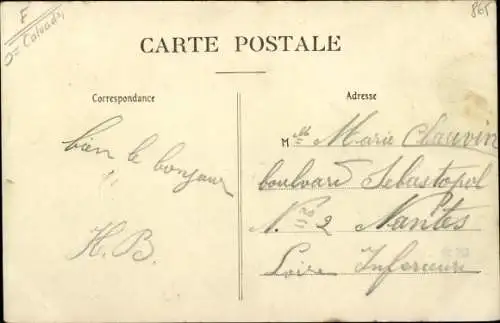 F
D= Calvados
865
CARTE POSTALE
Correspondance
Adresse
bien le bonjour
H. B.
Mlle Marie Chauvin
boulvard Sebastopol
N. 2 Nantes
Loire Inferieure